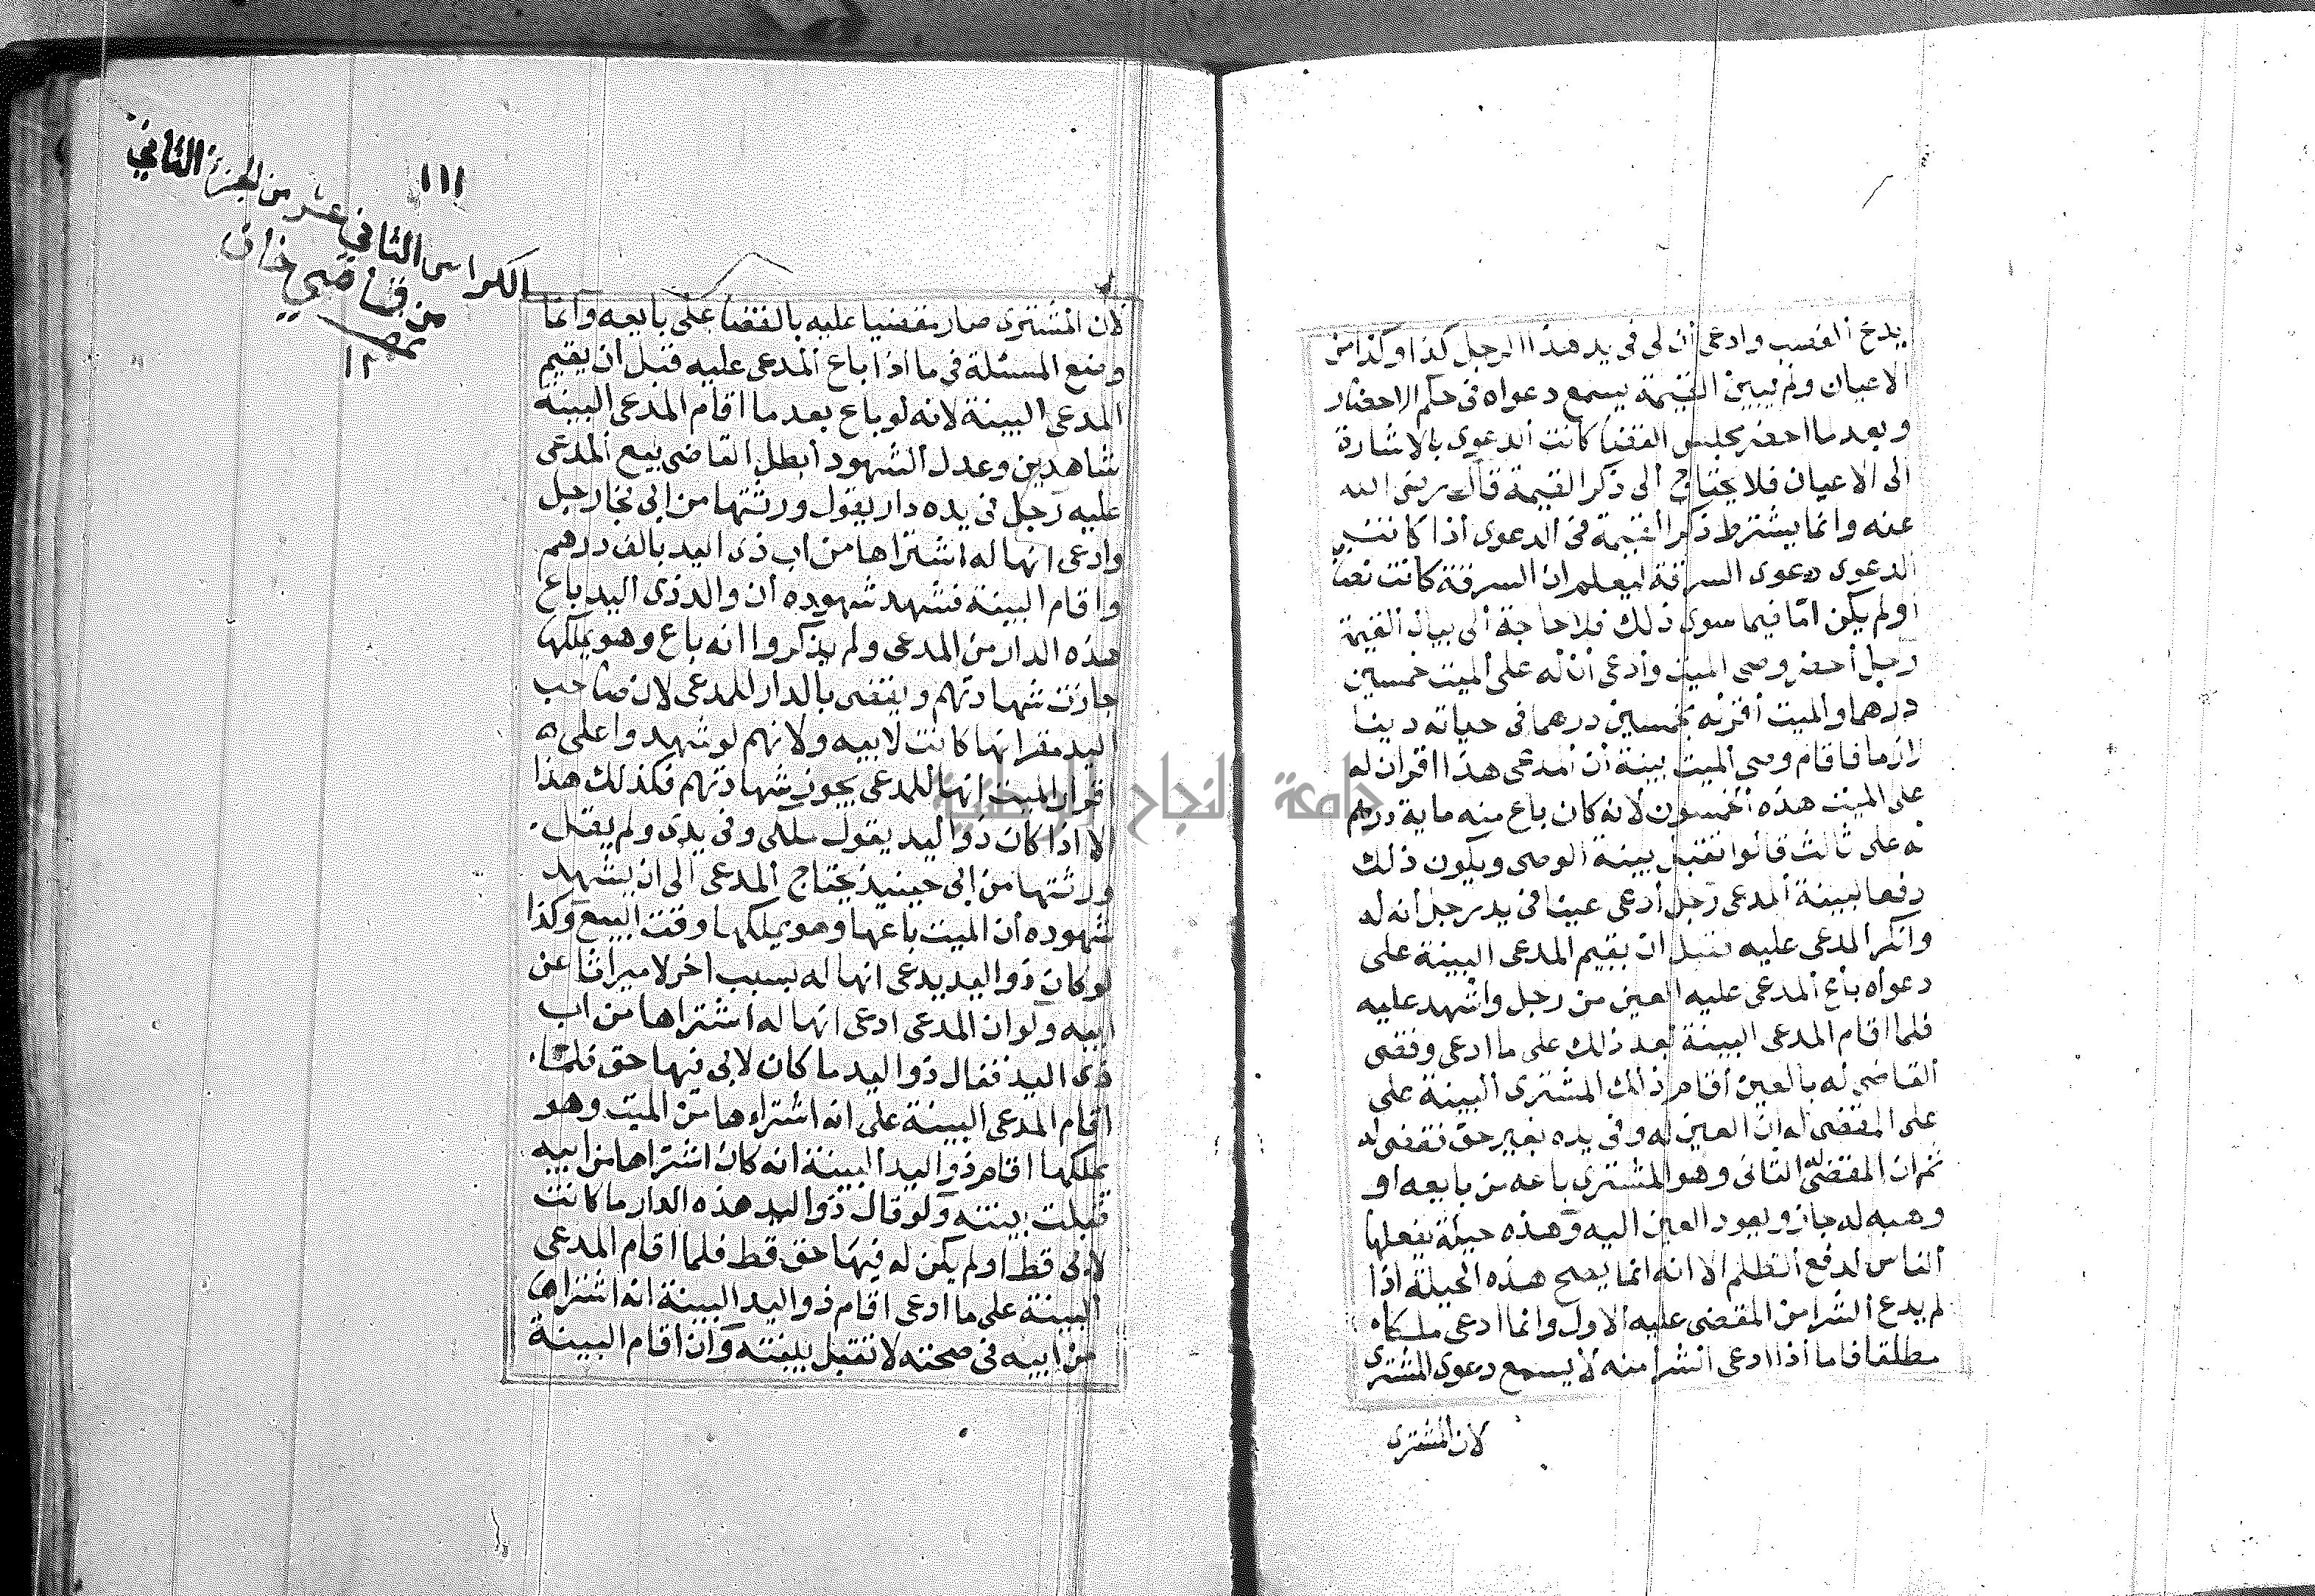 يدع الغصب وادعى ان لى فى يد هذا الرجل كذا وكذا من
الاعيان ولم يبين القيمة يسمع دعواه فى حكم الاحضار
وبعد ما احضر مجلس القضا كانت الدعوى بالاشارة
الى الاعيان فلا يحتاج الى ذكر القيمة قال رضى الله
عنه وانما يشترط ذكر القيمة فى الدعوى اذا كانت
الدعوى دعوى السرقة ليعلم ان السرقة كانت نصابا
اولم يكن امّا فيما سوى ذلك فلا حاجة الى بيان القيمة
رجل احضر وصى الميت وادعى ان له على الميت خمسين
درهما والميت اقر له بخمسين درهما فى حياته دينا
لازما فاقام وصى الميت بينة ان المدعى هذا اقران له
على الميت هذه الخمسون لانه كان باع منه ماية درهم
له على ثالث قالوا تقبل بينة الوصى ويكون ذلك
دفعا لبينة المدعى رجل ادعى عينا فى يد رجل انه له
وانكر المدعى عليه فقبل ان يقيم المدعى البينة على
دعواه باع المدعى عليه العين من رجل واشهد عليه
فلما اقام المدعى البينة بعد ذلك على ما ادعى وقضى
القاضى له بالعين اقام ذلك المشترى البينة على
على المقضى له ان العين له وفى يده بغير حق فقضى له
ثم ان المقضىّ له الثانى وهو المشترى باعه من بايعه او
وهبه له جاز ويعود العين اليه وهذه حيلة يفعلها
الناس لدفع الظلم الا انه انما يصح هذه الحيلة اذا
لم يدع الشرا من المقضى عليه الاول وانما ادعى ملكا
مطلقا فاما اذا ادعى الشرا منه لا يسمع دعوى المشترى
لان المشترى
١١١
الكراس الثاني عشر من الجزء الثاني
من قاضي خان
١٢
لان المشترى صار مقضيا عليه بالقضا على بايعه وانما
وضع المسئلة فى ما اذا باع المدعى عليه قبل ان يقيم
المدعى البينة لانه لو باع بعد ما اقام المدعى البينة
شاهدين وعدل الشهود ابطل القاضى بيع المدعى
عليه رجل فى يده دار يقول ورثتها من ابى فجا رجل
وادعى انها له اشتراها من اب ذى اليد بالف درهم
واقام البينة فشهد شهوده ان والد ذى اليد باع
هذه الدار من المدعى ولم يذكروا انه باع وهو يملكها
جازت شهادتهم ويقضى بالدار للمدعى لان صاحب
اليد مقر انها كانت لابيه ولانهم لو شهدوا على
اقرار الميت انها للمدعى يجوز شهادتهم فكذلك هذا
الا اذا كان ذو اليد يقول ملكى وفى يدى ولم يقل
ورثتها من ابى حينيذ يحتاج المدعى الى ان يشهد
شهوده ان الميت باعها وهو يملكها وقت البيع وكذا
لو كان ذو اليد يدعى انها له بسبب اخر لا ميراثا عن
ابيه ولو ان المدعى ادعى انها له اشتراها من اب
ذى اليد فقال ذو اليد ما كان لابى فيها حق فلما
اقام المدعى البينة على انه اشتراها من الميت وهو
يملكها اقام ذو اليد البينة انه كان اشتراها من ابيه
قبلت بينته ولو قال ذو اليد هذه الدار ما كانت
لابى قط او لم يكن له فيها حق قط فلما اقام المدعى
البينة على ما ادعى اقام ذو اليد البينة انه اشتراها
من ابيه فى صحته لا تقبل بينته وان اقام البينة
جامعة النجاح الوطنية